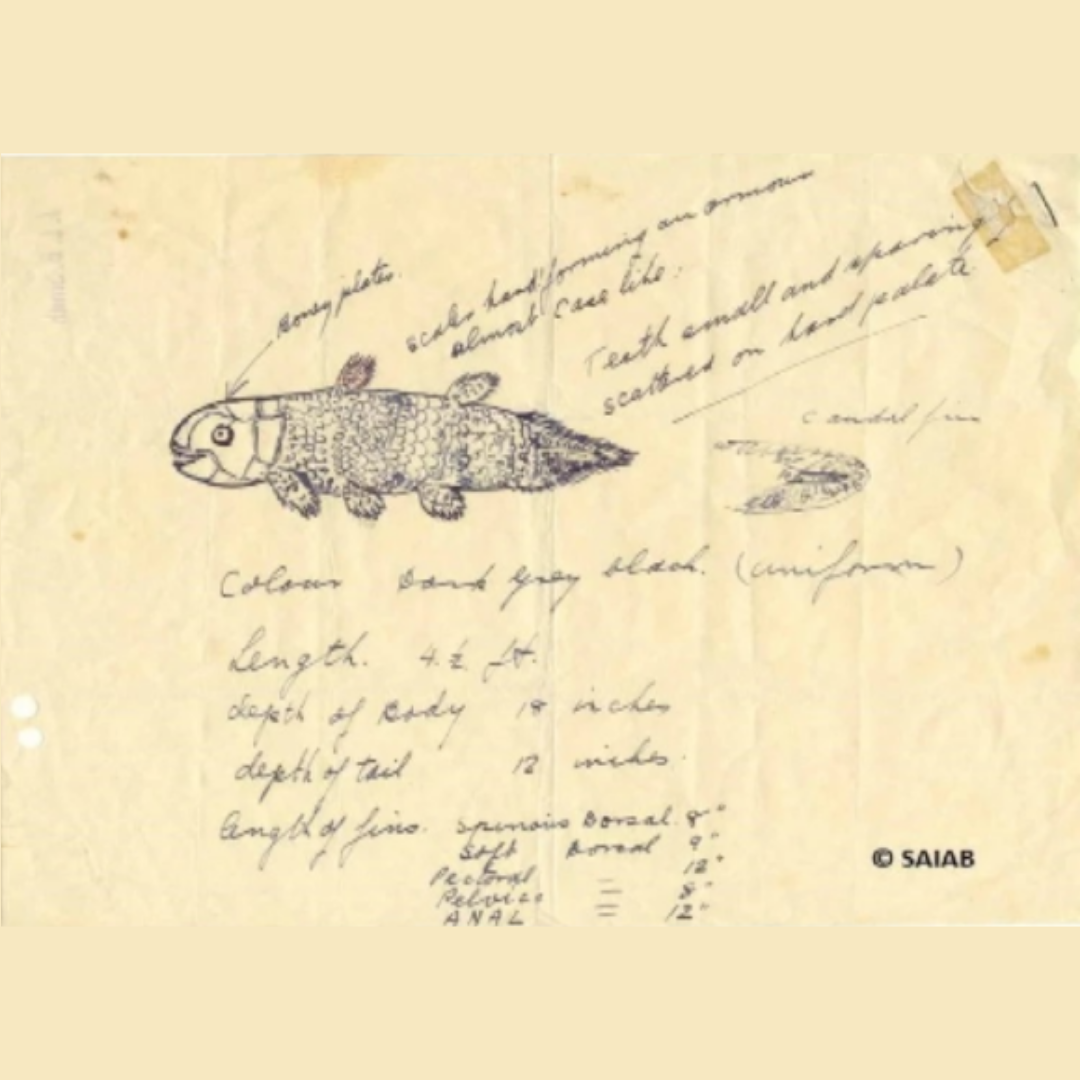 Boney plates.
scales hard forming an armour
almost case like.
Teeth small and sparing
scattered on hard palate
Caudal fin
Colour Dark grey black. (uniform)
Length. 4.½ ft.
depth of Body 18 inches
depth of tail 12 inches.
length of fins. Spinous Dorsal. 8"
Soft Dorsal 9"
Pectoral 12"
Pelvic = 8"
ANAL = 12"
© SAIAB